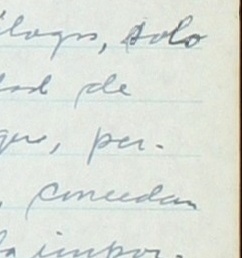 ílogos, solo
dad de
que, per-
, concedan
la impor-